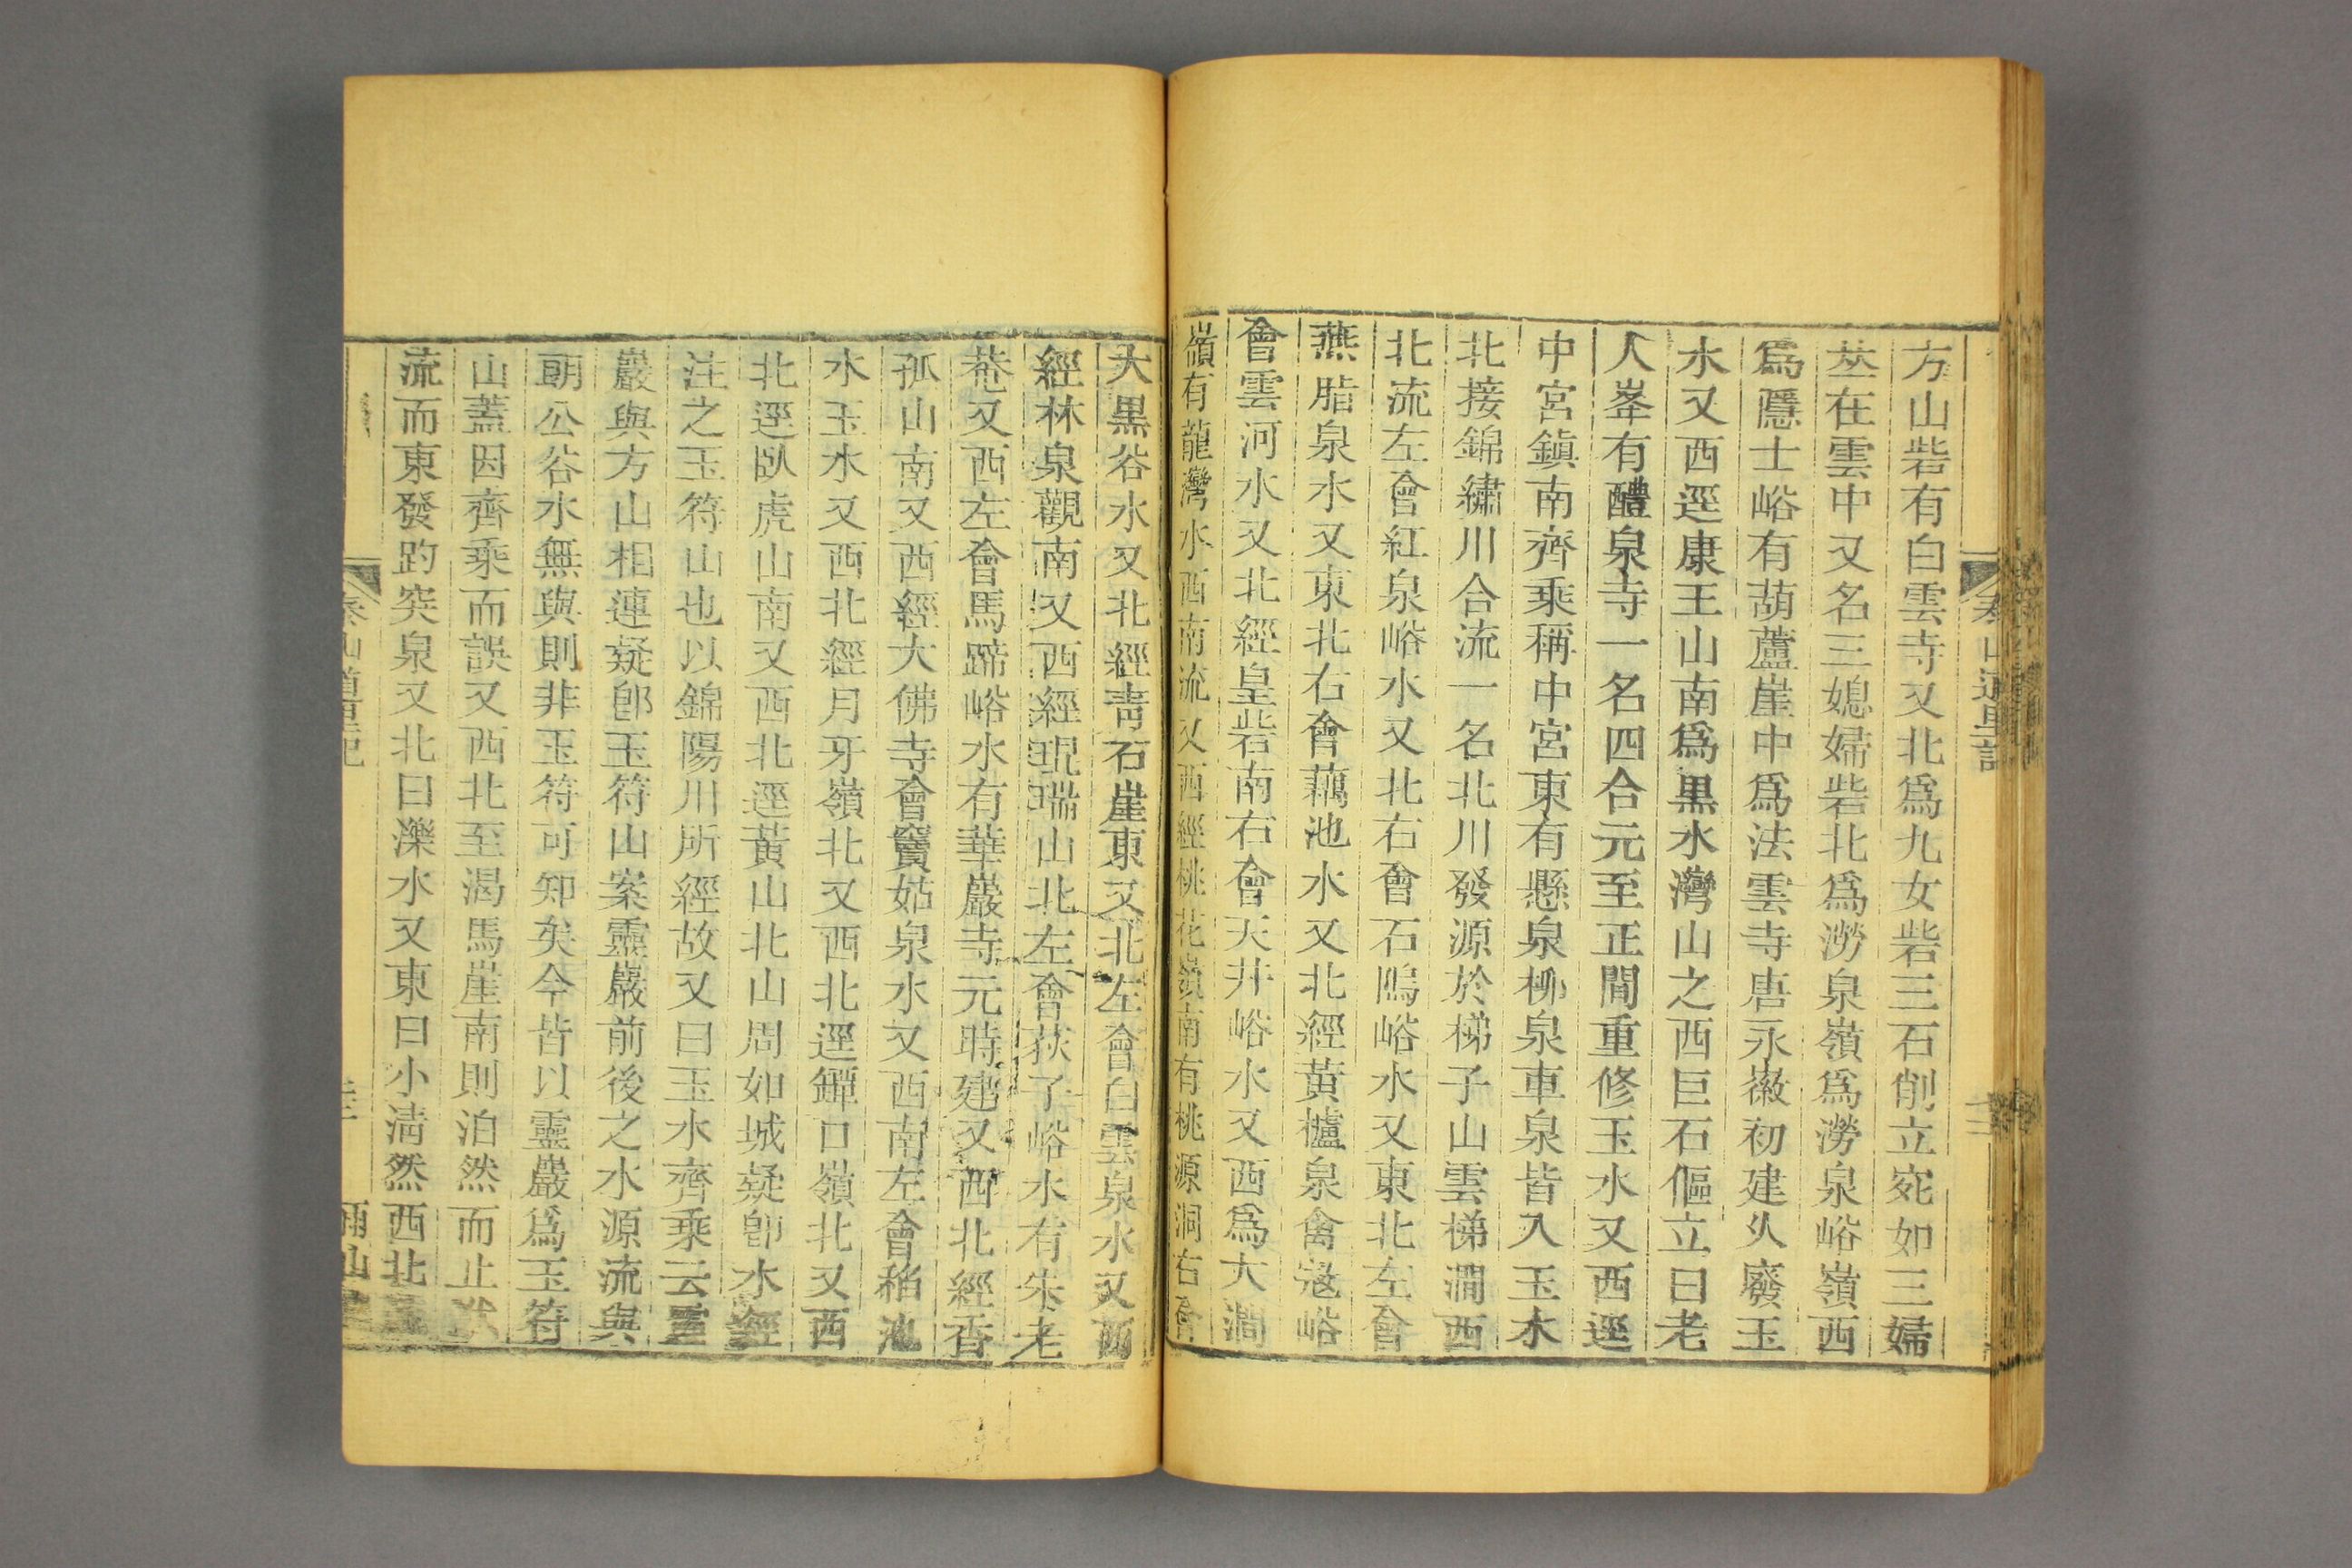 泰山道里記
方山砦有白雲寺又北爲九女砦三石削立宛如三婦
莁在雲中又名三媳婦砦北爲澇泉嶺爲澇泉峪嶺西
爲隱士峪有葫蘆崖中爲法雲寺唐永徽初建乆廢玉
水又西逕康王山南爲黒水灣山之西巨石傴立曰老
人峯有醴泉寺一名四合元至正間重修玉水又西逕
中宮鎮南齊乘稱中宮東有懸泉柳泉車泉皆入玉水
北接錦繡川合流一名北川發源於梯子山雲梯澗西
北流左會紅泉峪水又北右會石鴟峪水又東北左會
燕脂泉水又東北右會藕池水又北經黄櫨泉禽㓂峪
會雲河水又北經皇砦南右會天井峪水又西爲大澗
嶺有龍灣水西南流又西經桃花嶺南有桃源洞右會
大黒谷水又北經靑石崖東又北左會白雲泉水又西
經林泉觀南又西經琨瑞山北左會荻子峪水有朱老
菴又西左會馬蹄峪水有華嚴寺元時建又西北經香
孤山南又西經大佛寺會竇姑泉水又西南左會稻池
水玉水又西北經月牙嶺北又西北逕鱓口嶺北又西
北逕臥虎山南又西北逕黃山北山周如城疑卽水經
注之玉符山也以錦陽川所經故又曰玉水齊乘云靈
巖與方山相連疑卽玉符山案靈巖前後之水源流與
朝公谷水無與則非玉符可知矣今皆以靈巖爲玉符
山蓋因齊乘而誤又西北至渴馬崖南則泊然而止伏
流而東發趵突泉又北曰濼水又東曰小淸然西北
泰山道里記